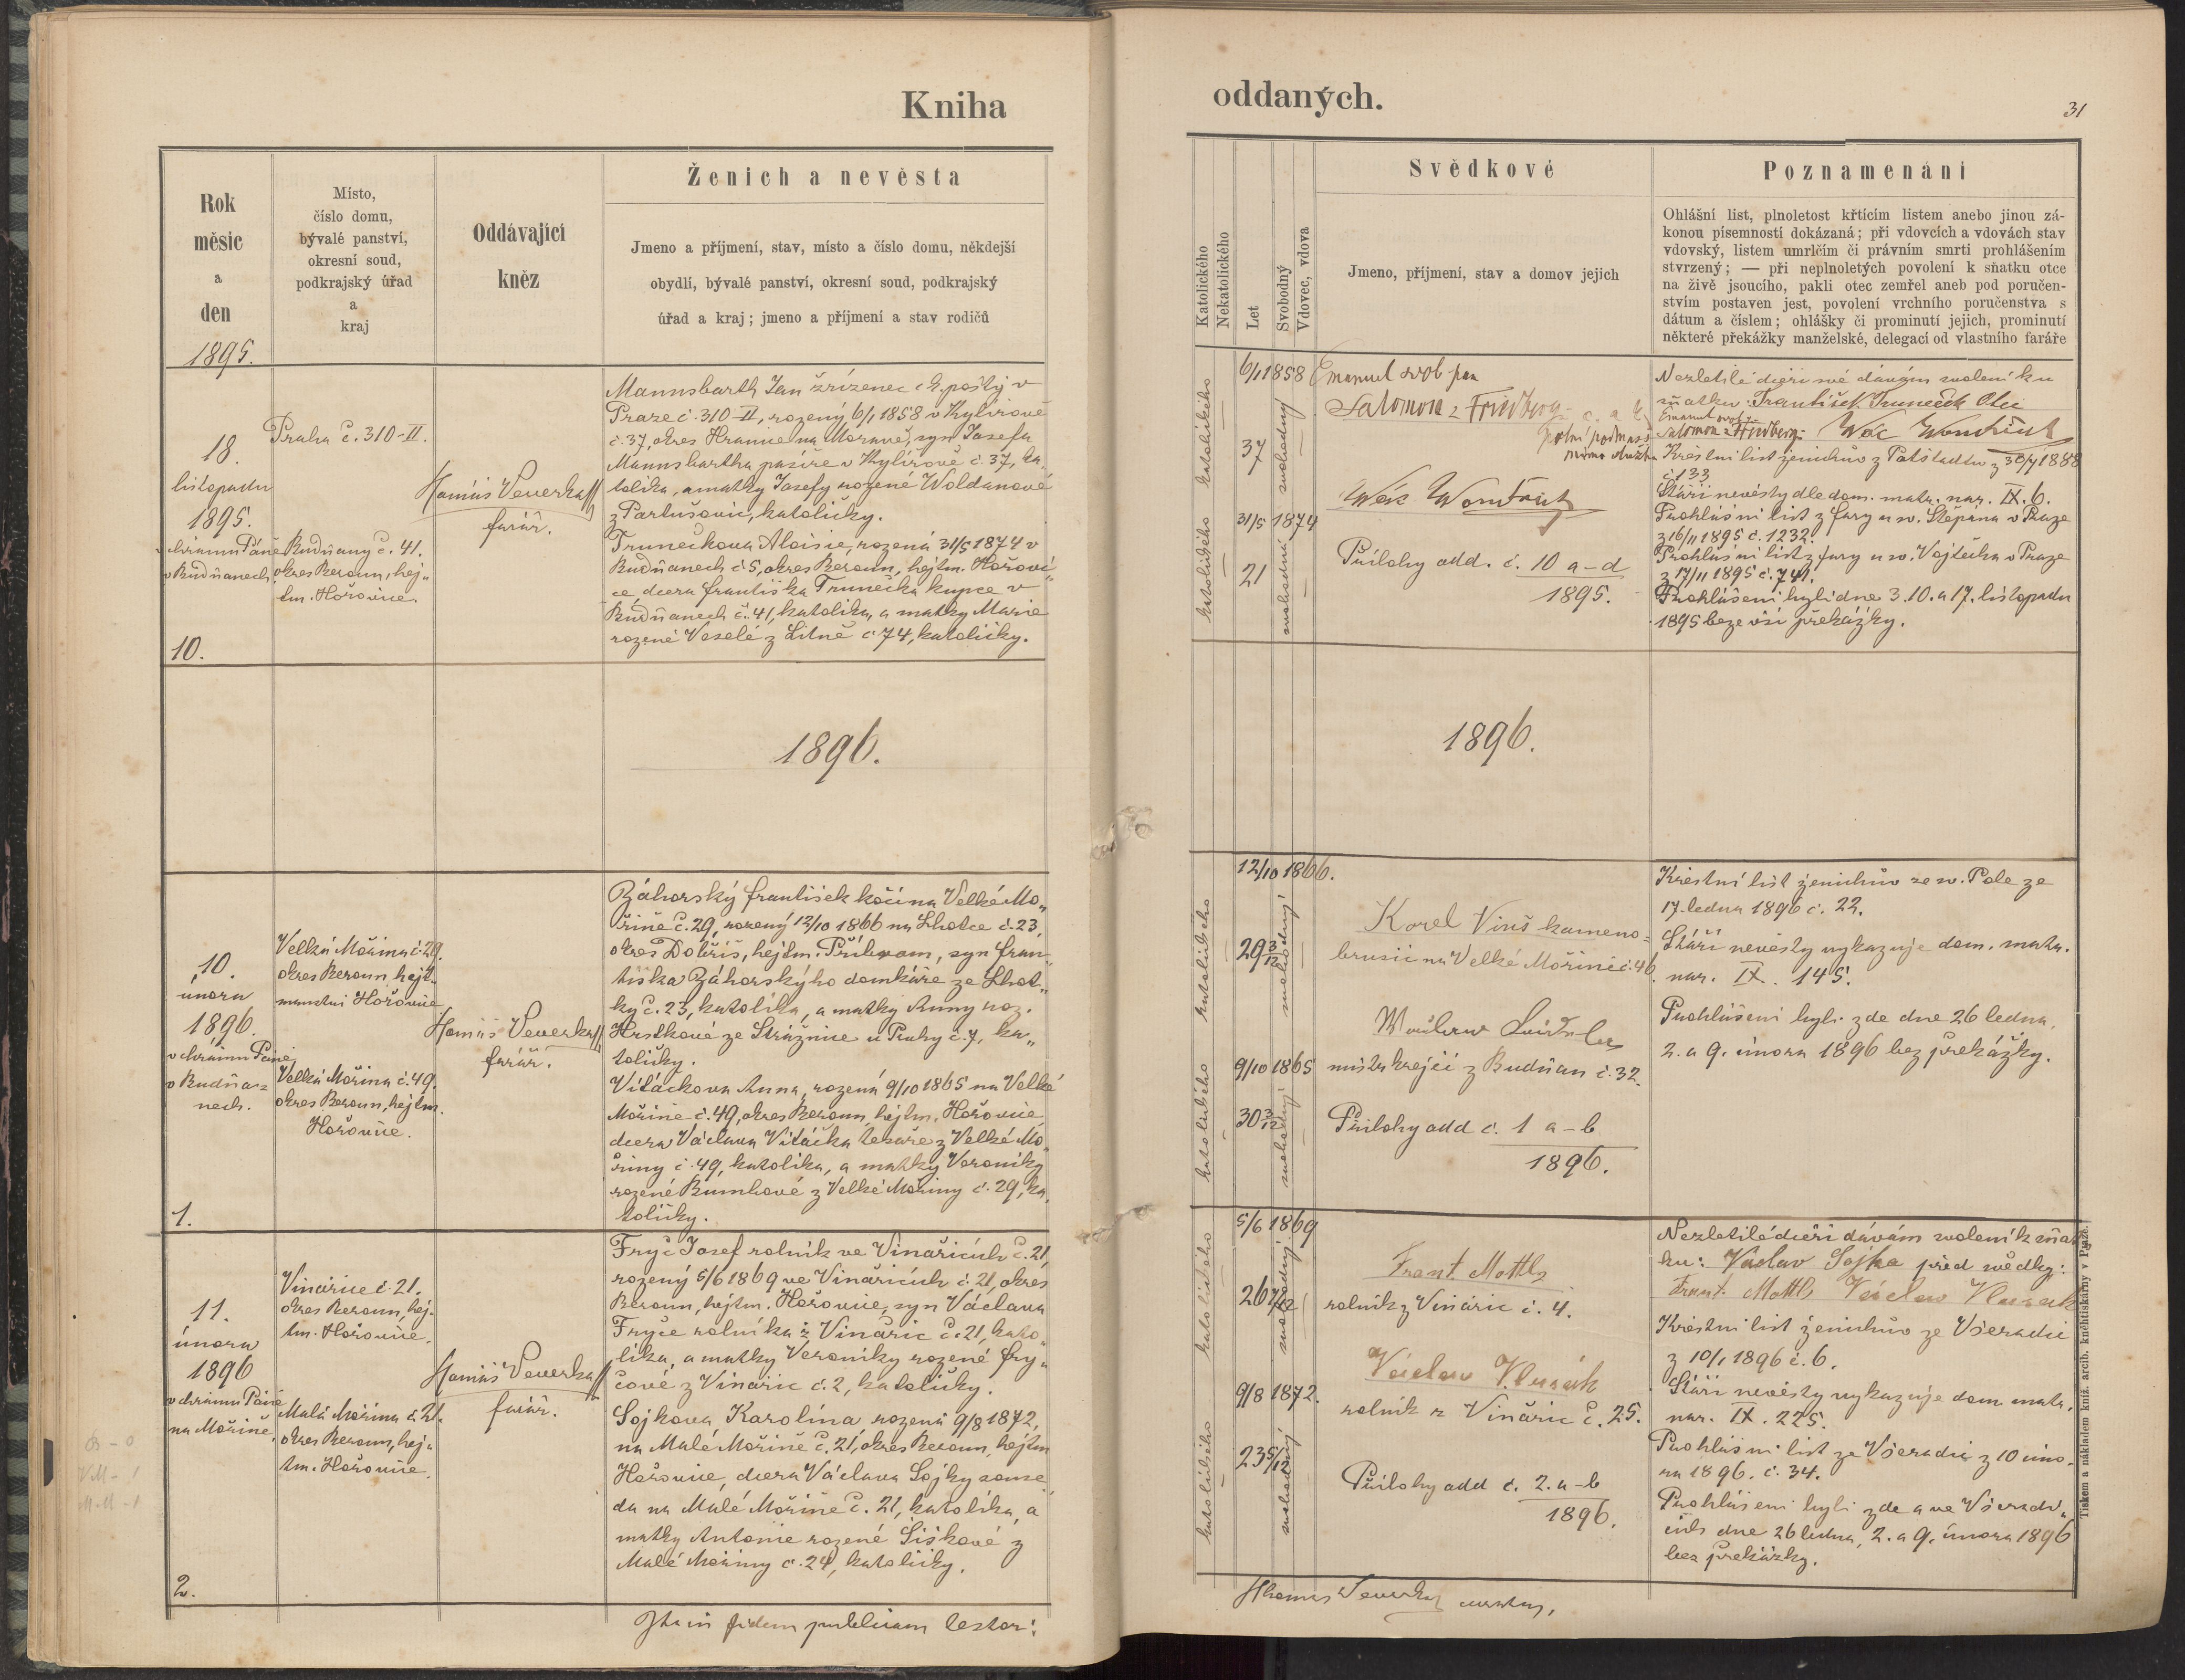 Kniha
Rok
měsíc
a
den
1895.
Místo,
číslo domu,
bývalé panství,
okresní soud,
podkrajský úřad
a
kraj
Oddávající
kněz
Ženich a nevěsta
Jmeno a příjmení, stav, místo a číslo domu, někdejší
obydlí, bývalé panství, okresní soud, podkrajský
úřad a kraj; jmeno a příjmení a stav rodičů
18.
listopadu
1895.
v chrámu Páně
v Budňanech
10.
Praha č. 310-II.
Budňany č. 41.
okres Beroun, hej„
tm. Hořovice.
Tomáš Veverka
farář.
Mannsbarth Jan zřízenec c. k. pošty v
Praze č. 310-II, rozený 6/1 1858 v Kylířově
č. 37, okres Hranice na Moravě, syn Josefa
Mannsbartha paśíře v Kylířově č. 37, ka„
tolíka, a matky Josefy rozené Woldanové
z Partušovic, katoličky.
Trunečkova Aloisie, rozená 31/5 1874 v
Budňanech č 5, okres Beroun, hejtm. Hořovi„
ce, dcera Františka Trunečka kupce v
Budňanech č. 41, katolíka, a matky Marie
rozené Veselé z Litně č 74, katoličky.
1896.
10.
února
1896.
v chrámu Páně
v Budňa=
nech.
1.
Velká Mořina č. 29.
okres Beroun, hejt„
manství Hořovice
Velká Mořina č. 49.
okres Beroun, hejtm.
Hořovice.
Tomáš Veverka
farář.
Záhorský František kočí na Velké Mo„
řině č. 29, rozený 12/10 1866 na Lhotce č. 23,
okres Dobříš, hejtm. Příbram, syn Fran„
tiška Záhorského domkáře ze Lhot„
ky č. 23, katolíka, a matky Anny roz.
Hrstkové ze Strážnice u Prahy č. 7, ka„
toličky.
Vítáčkova Anna, rozená 9/10 1865 na Velké
Mořině č. 49, okres Beroun, hejtm. Hořovice,
dcera Václava Vítáčka tesaře z Velké Mo„
řiny č. 49, katolíka, a matky Veroniky
rozené Bumbové z Velké Mořiny č. 29, ka„
toličky.
11.
února
1896
v chrámu Páně
na Mořině.
2.
Vinařice č. 21.
okres Beroun, hej„
tm. Hořovice.
Malá Mořina č. 21.
okres Beroun, hej„
tm. Hořovice.
Tomáš Veverka
farář.
Fryč Josef rolník ve Vinařicích č. 21,
rozený 5/6 1869 ve Vinařicích č. 21, okres
Beroun, hejtm. Hořovice, syn Václava
Fryče rolníka z Vinařic č. 21, kato„
líka, a matky Veroniky rozené Fry„
čové z Vinařic č. 2, katoličky.
Sojková Karolína, rozená 9/8 1872,
na Malé Mořině č. 21, okres Beroun, hejtm
Hořovice, dcera Václava Sojky souse„
da na Malé Mořině č. 21, katolíka, a
matky Antonie rozené Šiškové z
Malé Mořiny č. 24, katoličky.
Ita in fidem publicam testor:
oddaných.
31
Katolického
Nekatolického
Let
Svobodný
Vdovec, vdova
Svědkové
Jmeno, příjmení, stav a domov jejich
Poznamenání
Ohlášní list, plnoletost křtícím listem anebo jinou zá-
konou písemností dokázaná; při vdovcích a vdovách stav
vdovský, listem umrlčím či právním smrti prohlášením
stvrzený; — při neplnoletých povolení k sňatku otce
na živě jsoucího, pakli otec zemřel aneb pod poručen-
stvím postaven jest, povolení vrchního poručenstva s
dátum a číslem; ohlášky či prominutí jejich, prominutí
některé překážky manželské, delegací od vlastního faráře
katolického
katolického
6/1 1858
37
31/5 1874
21
svobodný
svobodná
Emanuel svob pan
Salomon z Friedberg
c. a k.
polní podmarš.
mimo službu
Přílohy odd. č. 10 a-d
1895.
Nezletilé dceři své dávám svolení ku
sňatku: František Truneček Otec
Emanuel svob. p.
Salomon z Friedberg.
Křestní list ženichův z Potštadtu z 30/7 1888
č 133
Stáří nevěsty dle dom. matr. nar. IX. 6.
Prohlášní list z fary u sv. Štěpána v Praze
z 16/11 1895 č. 1232.
Prohlášní list z fary u sv. Vojtěcha v Praze
z 17/11 1895 č. 741.
Prohlášeni byli dne 3. 10. a 17. listopadu
1895 beze vší překážky.
1896.
katolického
katolického
12/10 1866.
29 3/12
9/10 1865
30 3/12
svobodný
svobodný
Karel Viriš kameno=
brusič na Velké Mořině č. 46.
Václav
mistr krejčí z Budňan č. 32.
Přílohy odd č. 1 a-b
1896.
Křestní list ženichův ze sv. Pole ze
17. ledna 1896 č. 22.
Stáří nevěsty vykazuje dom. matr.
nar. IX. 145.
Prohlášeni byli zde dne 26 ledna,
2. a 9. února 1896 bez překážky.
katolického
katolického
5/6 1869
26 7/12
9/8 1872.
23 5/12
svobodný
svobodný
Frant. Mottl
rolník z Vinařic č. 4.
Václav Klusák
rolník z Vinařic č. 25.
Přílohy odd č. 2. a-b
1896.
Nezletilé dceři dávám svolení k sňat„
ku: Václav Sojka před svědky:
Frant. Mottl Václav Klusák
Křestní list ženichův ze Všeradic
z 10/1 1896 č. 6.
Stáří nevěsty vykazuje dom. matr.
nar. IX. 225.
Prohlášní list ze Všeradic z 10 úno„
ra 1896. č. 34.
Prohlášeni byli zde a ve Všeradi„
cích dne 26 ledna, 2. a 9. února 1896
bez překážky.
Thomas Veverka curatus.
Tiskem a nákladem kníž. arcib. knihtiskárny v Praze.